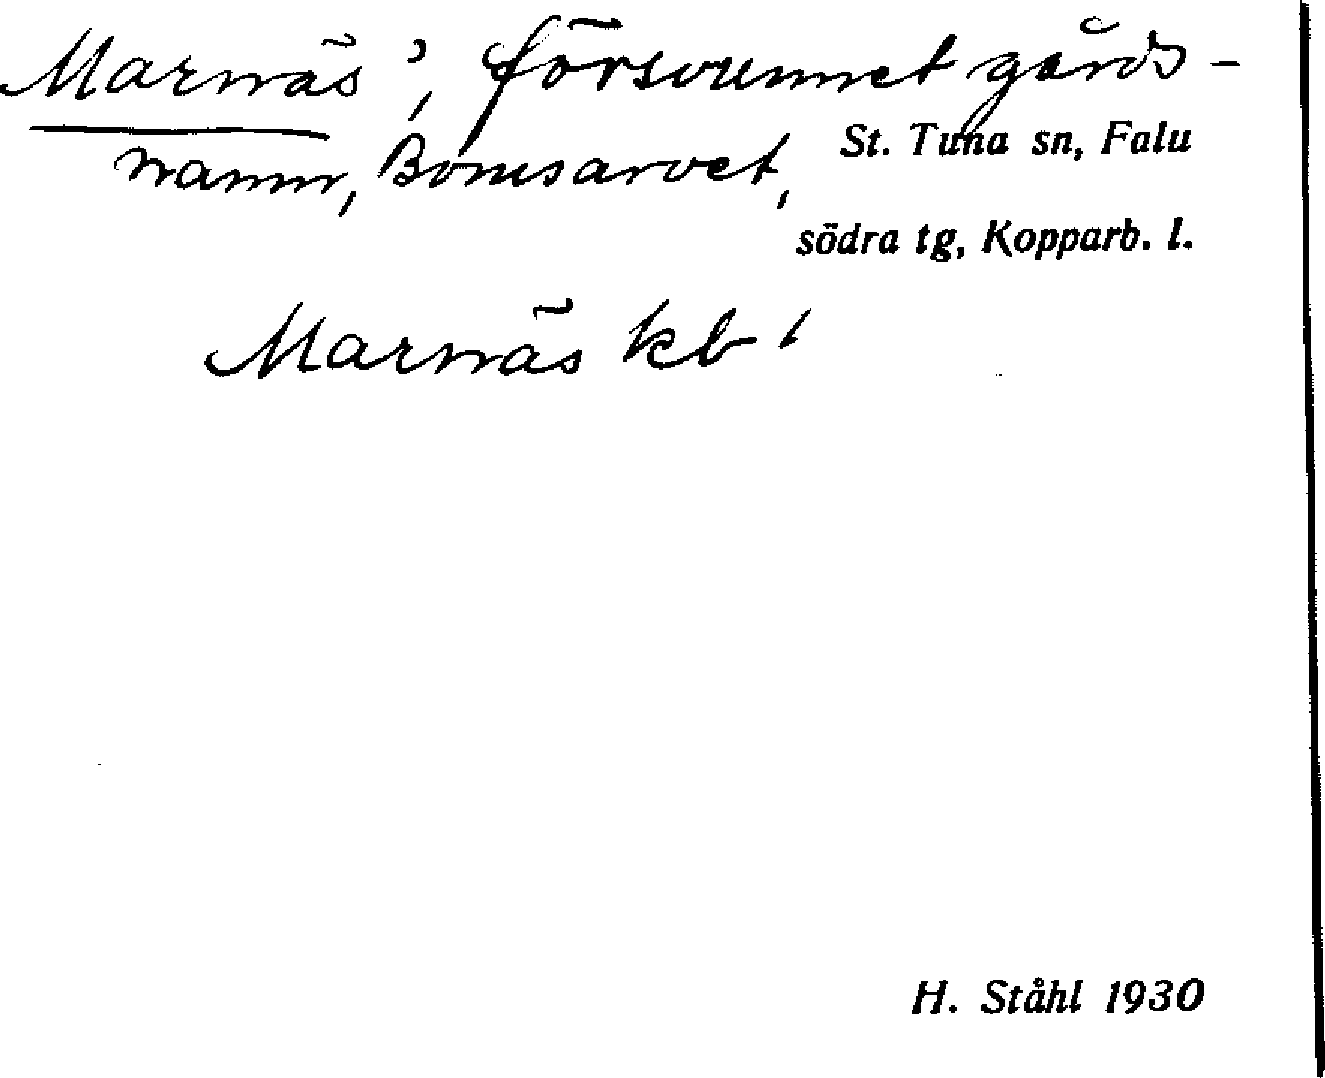 Marnäs ?, försvunnet gårds-
namn, Bomsarvet,
St. Tuna sn, Falu
södra tg, Kopparb. l.
Marnäs kb 1
H. Ståhl 1930